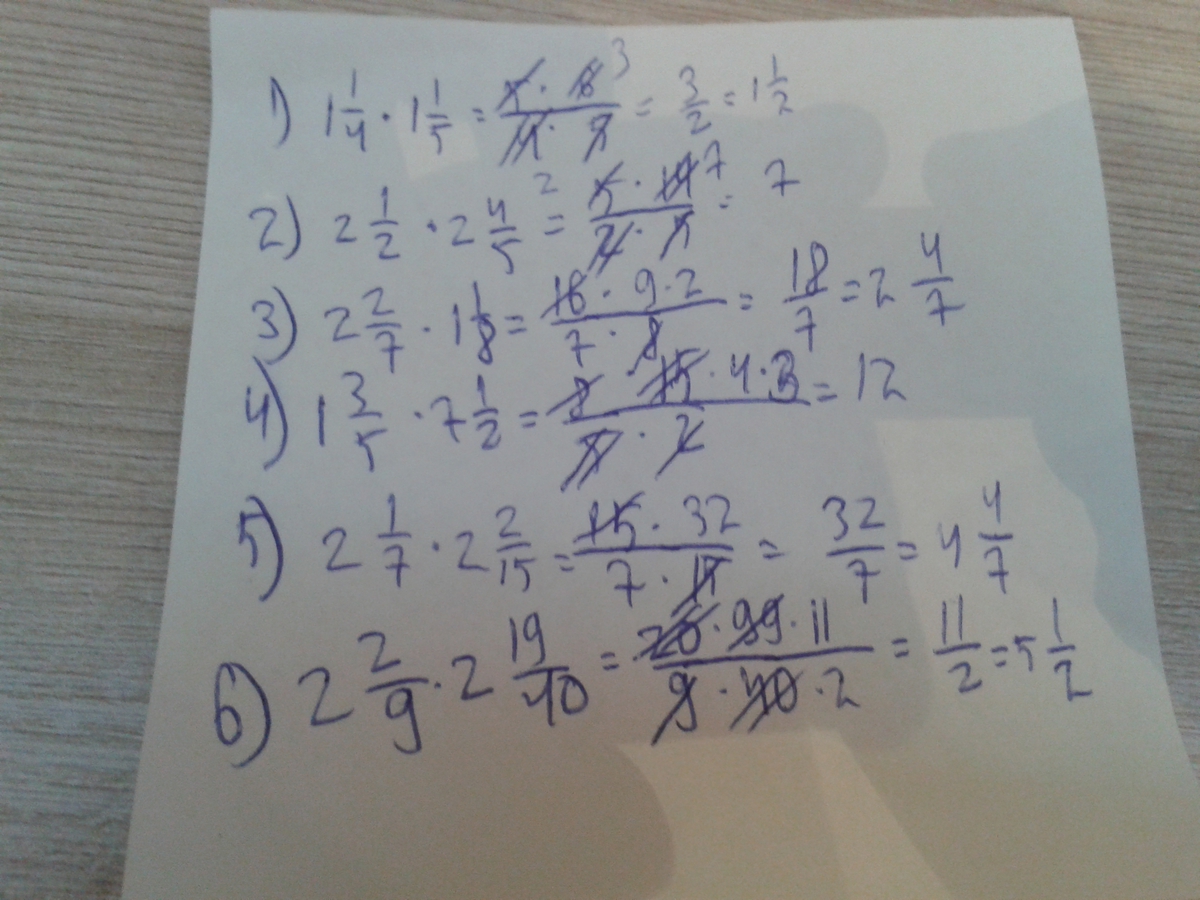 1) 1 1/4 · 1 1/5 = 5 · 6 3 / 4 · 5 = 3/2 = 1 1/2
2) 2 1/2 · 2 4/5 2 = 5 · 14 7 / 2 · 5 = 7
3) 2 2/7 · 1 1/8 = 16 · 9 · 2 / 7 · 8 = 18/7 = 2 4/7
4) 1 3/5 · 7 1/2 = 8 · 15 · 4 · 3 / 5 · 2 = 12
5) 2 1/7 · 2 2/15 = 15 · 32 / 7 · 15 = 32/7 = 4 4/7
6) 2 2/9 · 2 19/40 = 20 · 99 · 11 / 9 · 40 · 2 = 11/2 = 5 1/2